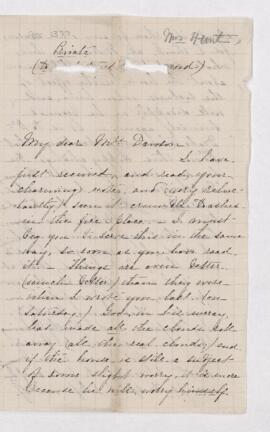 Mrs Hunt,
Private
My dear Mrs Davison
I have
first received, and read your
charming note, and (very reluc-
tantly) seen it crumble to ashes
in the fire place. – I must
beg you to serve this in the same
way, so soon as you have read
it. – Things are even better
(much better) than they were
when I wrote you last. (on
Saturday.) God in his mercy,
has made all the clouds roll
away (all the real clouds) and
if the house is still a subject
of some slight worry, it is more
because he will worry himself